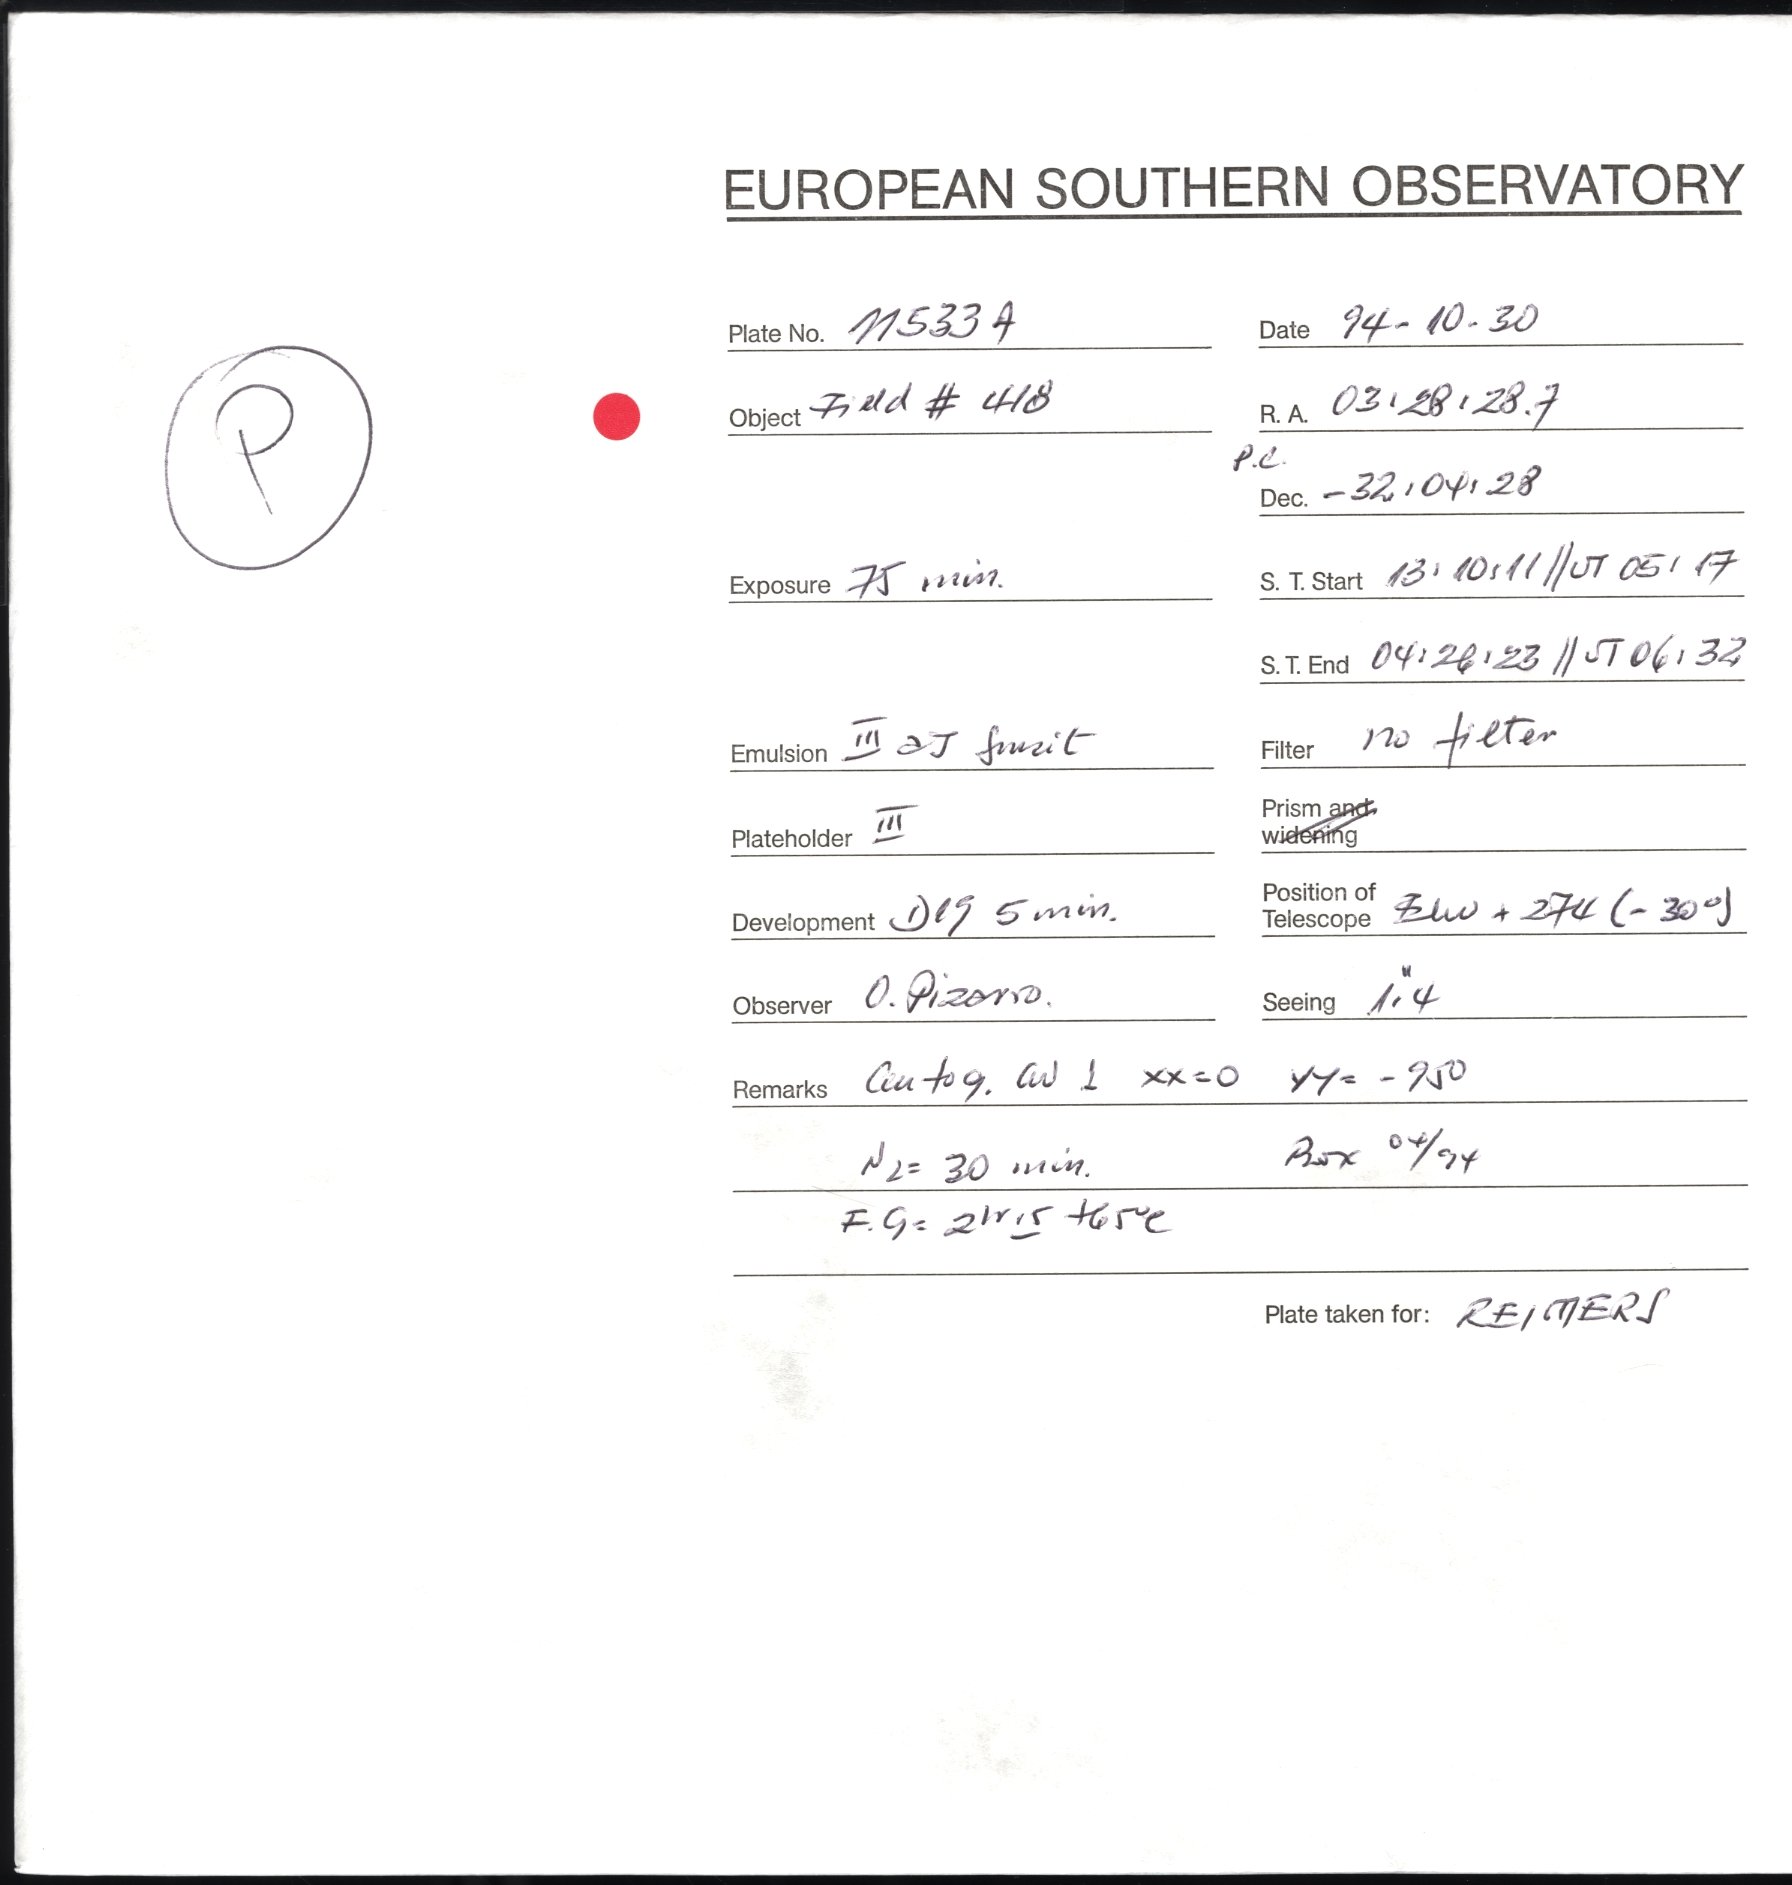 EUROPEAN SOUTHERN OBSERVATORY
Plate No. 11533 A Date 94-10-30
P
Object Field # 418 R. A. 03:28:28.7
P.C.
Dec. -32:04:28
Exposure 75 min. S. T. Start 13:10:11//UT 05:17
S. T. End 04:26:23//UT 06:32
Emulsion III aJ Filter no filter
Plateholder III Prism and
widening
Development D19 5 min. Position of
Telescope + 274 (-30°)
Observer O. Pizarro. Seeing 1".4
Remarks xx=0 yy= -950
N2= 30 min. Box 04/94
F.G= 2hr15 +65°C
Plate taken for: REIMERS